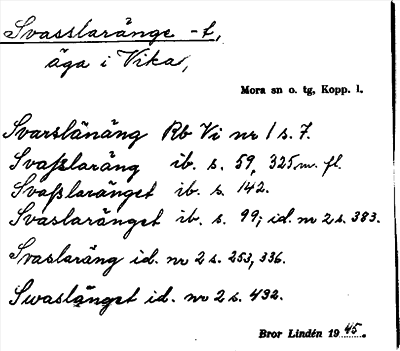 Svasslaränge -t,
äga i Vika,
Mora sn o. tg, Kopp. l.
Svarslänäng Rb Vi nr 1 s. 7.
Svaßlaräng ib. s. 59, 325 m. fl.
Svaßlaränget ib. s. 142.
Svaslaränget ib. s. 99; id. nr 2 s. 383.
Svaslaräng id. nr 2 s. 253, 336.
Swaslänget id. nr 2 s. 492.
Bror Lindén 1945.